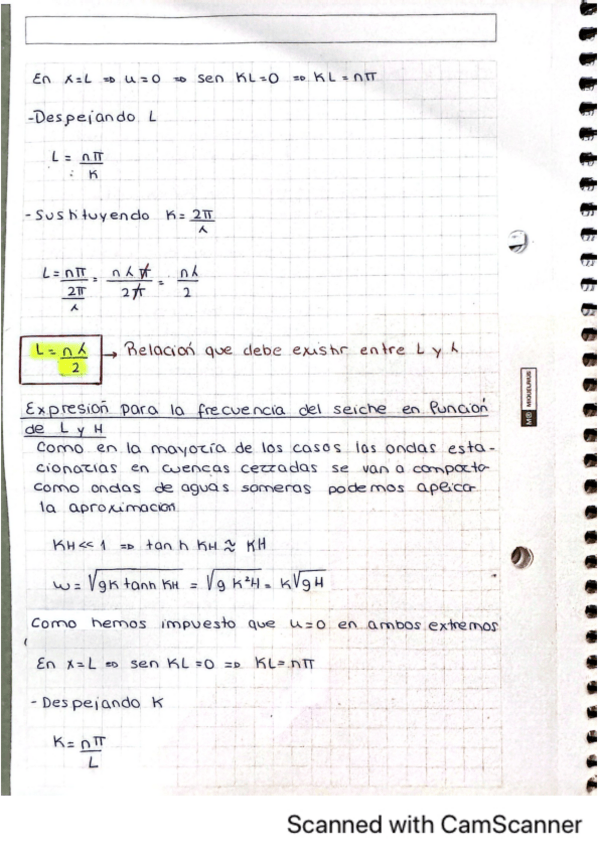 En x=L ⇒ u=0 ⇒ sen KL=0 ⇒ KL=nπ
-Despejando L
L = nπ/K
-Sustituyendo K=2π/λ
L=nπ/(2π/λ) = nλπ/2π = nλ/2
L=nλ/2 → Relación que debe existir entre L y λ
Expresión para la frecuencia del seiche en función
de L y H
Como en la mayoría de los casos las ondas esta-
cionarias en cuencas cerradas se van a comporta
como ondas de aguas someras podemos aplicar
la aproximación
KH<<1 ⇒ tanh KH ≈ KH
w=√gK tanh KH = √g K²H = K√gH
Como hemos impuesto que u=0 en ambos extremos
En x=L ⇒ sen KL=0 ⇒ KL=nπ
-Despejando K
K=nπ/L
MIQUELRIUS
Scanned with CamScanner